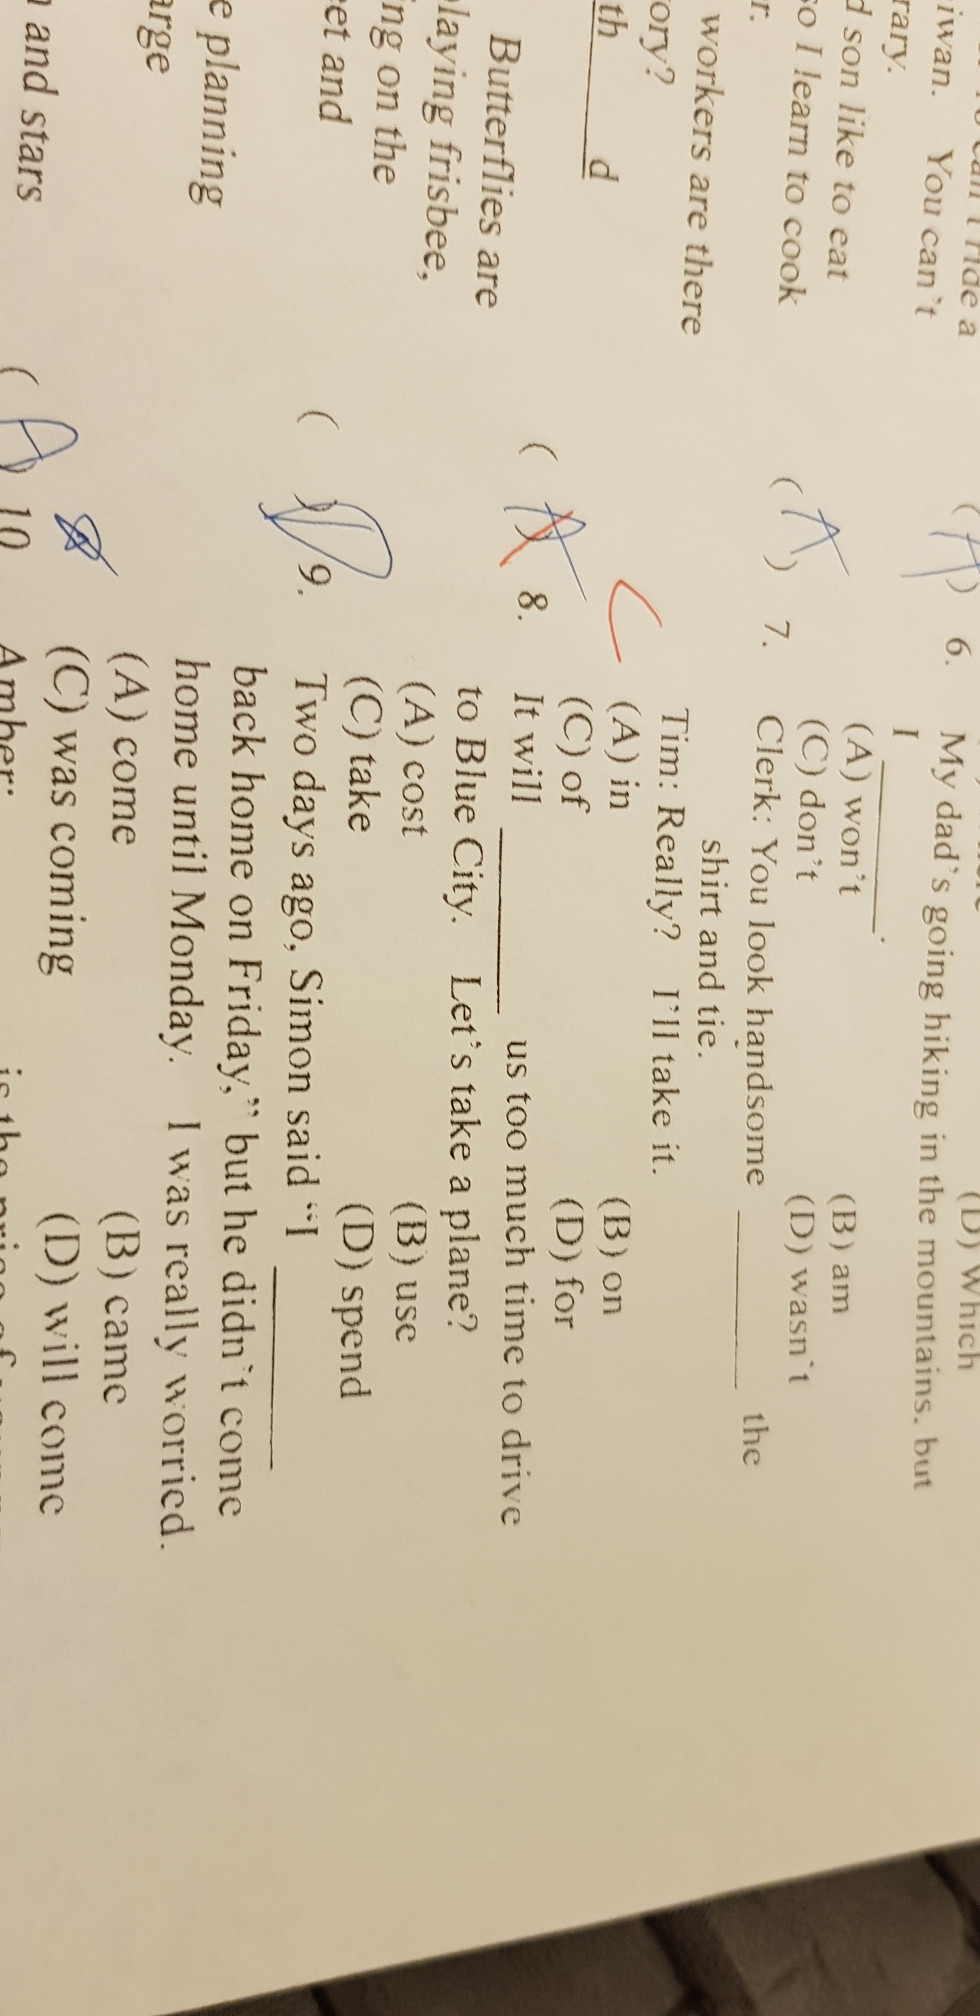 can't ride a
iwan. You can't
rary.
d son like to eat
so I learn to cook
r.
workers are there
ory?
th d
Butterflies are
laying frisbee,
ing on the
eet and
e planning
arge
and stars
(D) Which
(A) 6. My dad's going hiking in the mountains, but
I ________.
(A) won't (B) am
(C) don't (D) wasn't
(A) 7. Clerk: You look handsome ________ the
shirt and tie.
Tim: Really? I'll take it.
(A) in (B) on
(C) of (D) for
C
(A) 8. It will ________ us too much time to drive
to Blue City. Let's take a plane?
(A) cost (B) use
(C) take (D) spend
(D) 9. Two days ago, Simon said "I ________
back home on Friday," but he didn't come
home until Monday. I was really worried.
(A) come (B) came
(C) was coming (D) will come
(A) 10 Amber: is the price of